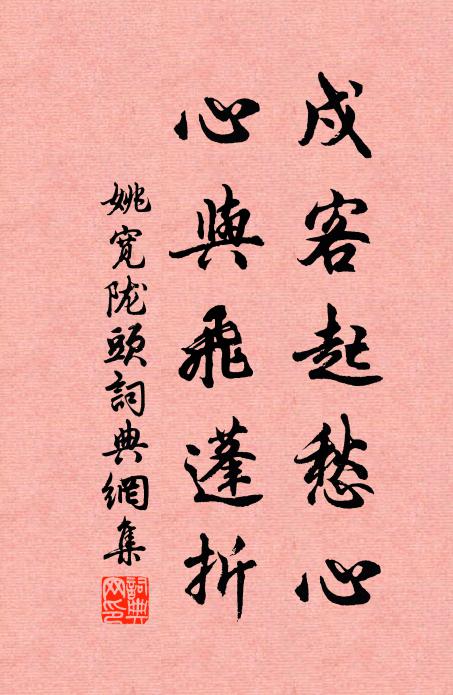 戍客起愁心
心與飛蓬折
姚寬陇頭詞典網集
詞典網印